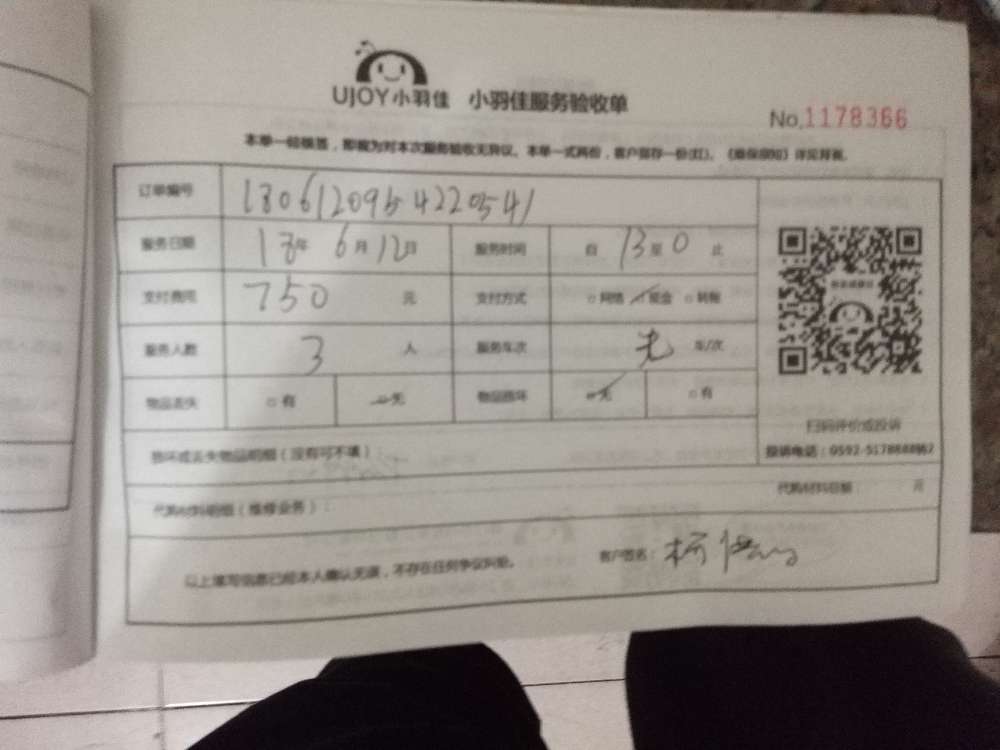 UJOY小羽佳 小羽佳服务验收单
No.1178366
本单一经签, 即视为对本次服务验收无异议。本单一式两份, 客户留存一份(红)。《维保须知》详见背面。
订单编号 1806120954220541
服务日期 18年 6月12日 服务时间 自 13至0 止
支付费用 750 元 支付方式 □网络 □现金 □转账
服务人数 3 人 服务车次 无 车/次
物品丢失 □有 □无 物品损坏 □无 □有
扫码评价或投诉
损坏或丢失物品明细(没有可不填):
投诉电话:0592-5178888转2
代购材料明细(维修业务):
代购材料总额: 元
以上填写信息已经本人确认无误,不存在任何争议纠纷。 客户签名: